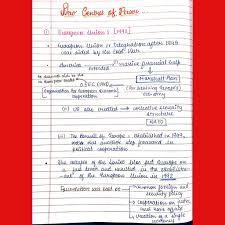 New Centres of Power...
(i) European Union : [1992]
European Union :- Integration after 1945
was aided by the Cold War.
America extended massive financial help
Marshall Plan
(for reviving Europe's
economy)
OEEC (1948)
(Organisation for European Economic
Cooperation)
(ii) US also created → collective security
structure
NATO
(iii) The Council of Europe : established in 1949,
was another step forward in
political cooperation
The collapse of the Soviet bloc put Europe on
a fast track and resulted in the establish-
ment of the European Union in 1992
Foundation was laid of
common foreign and
security policy
cooperation on justice
and home affairs
creation of a single
currency